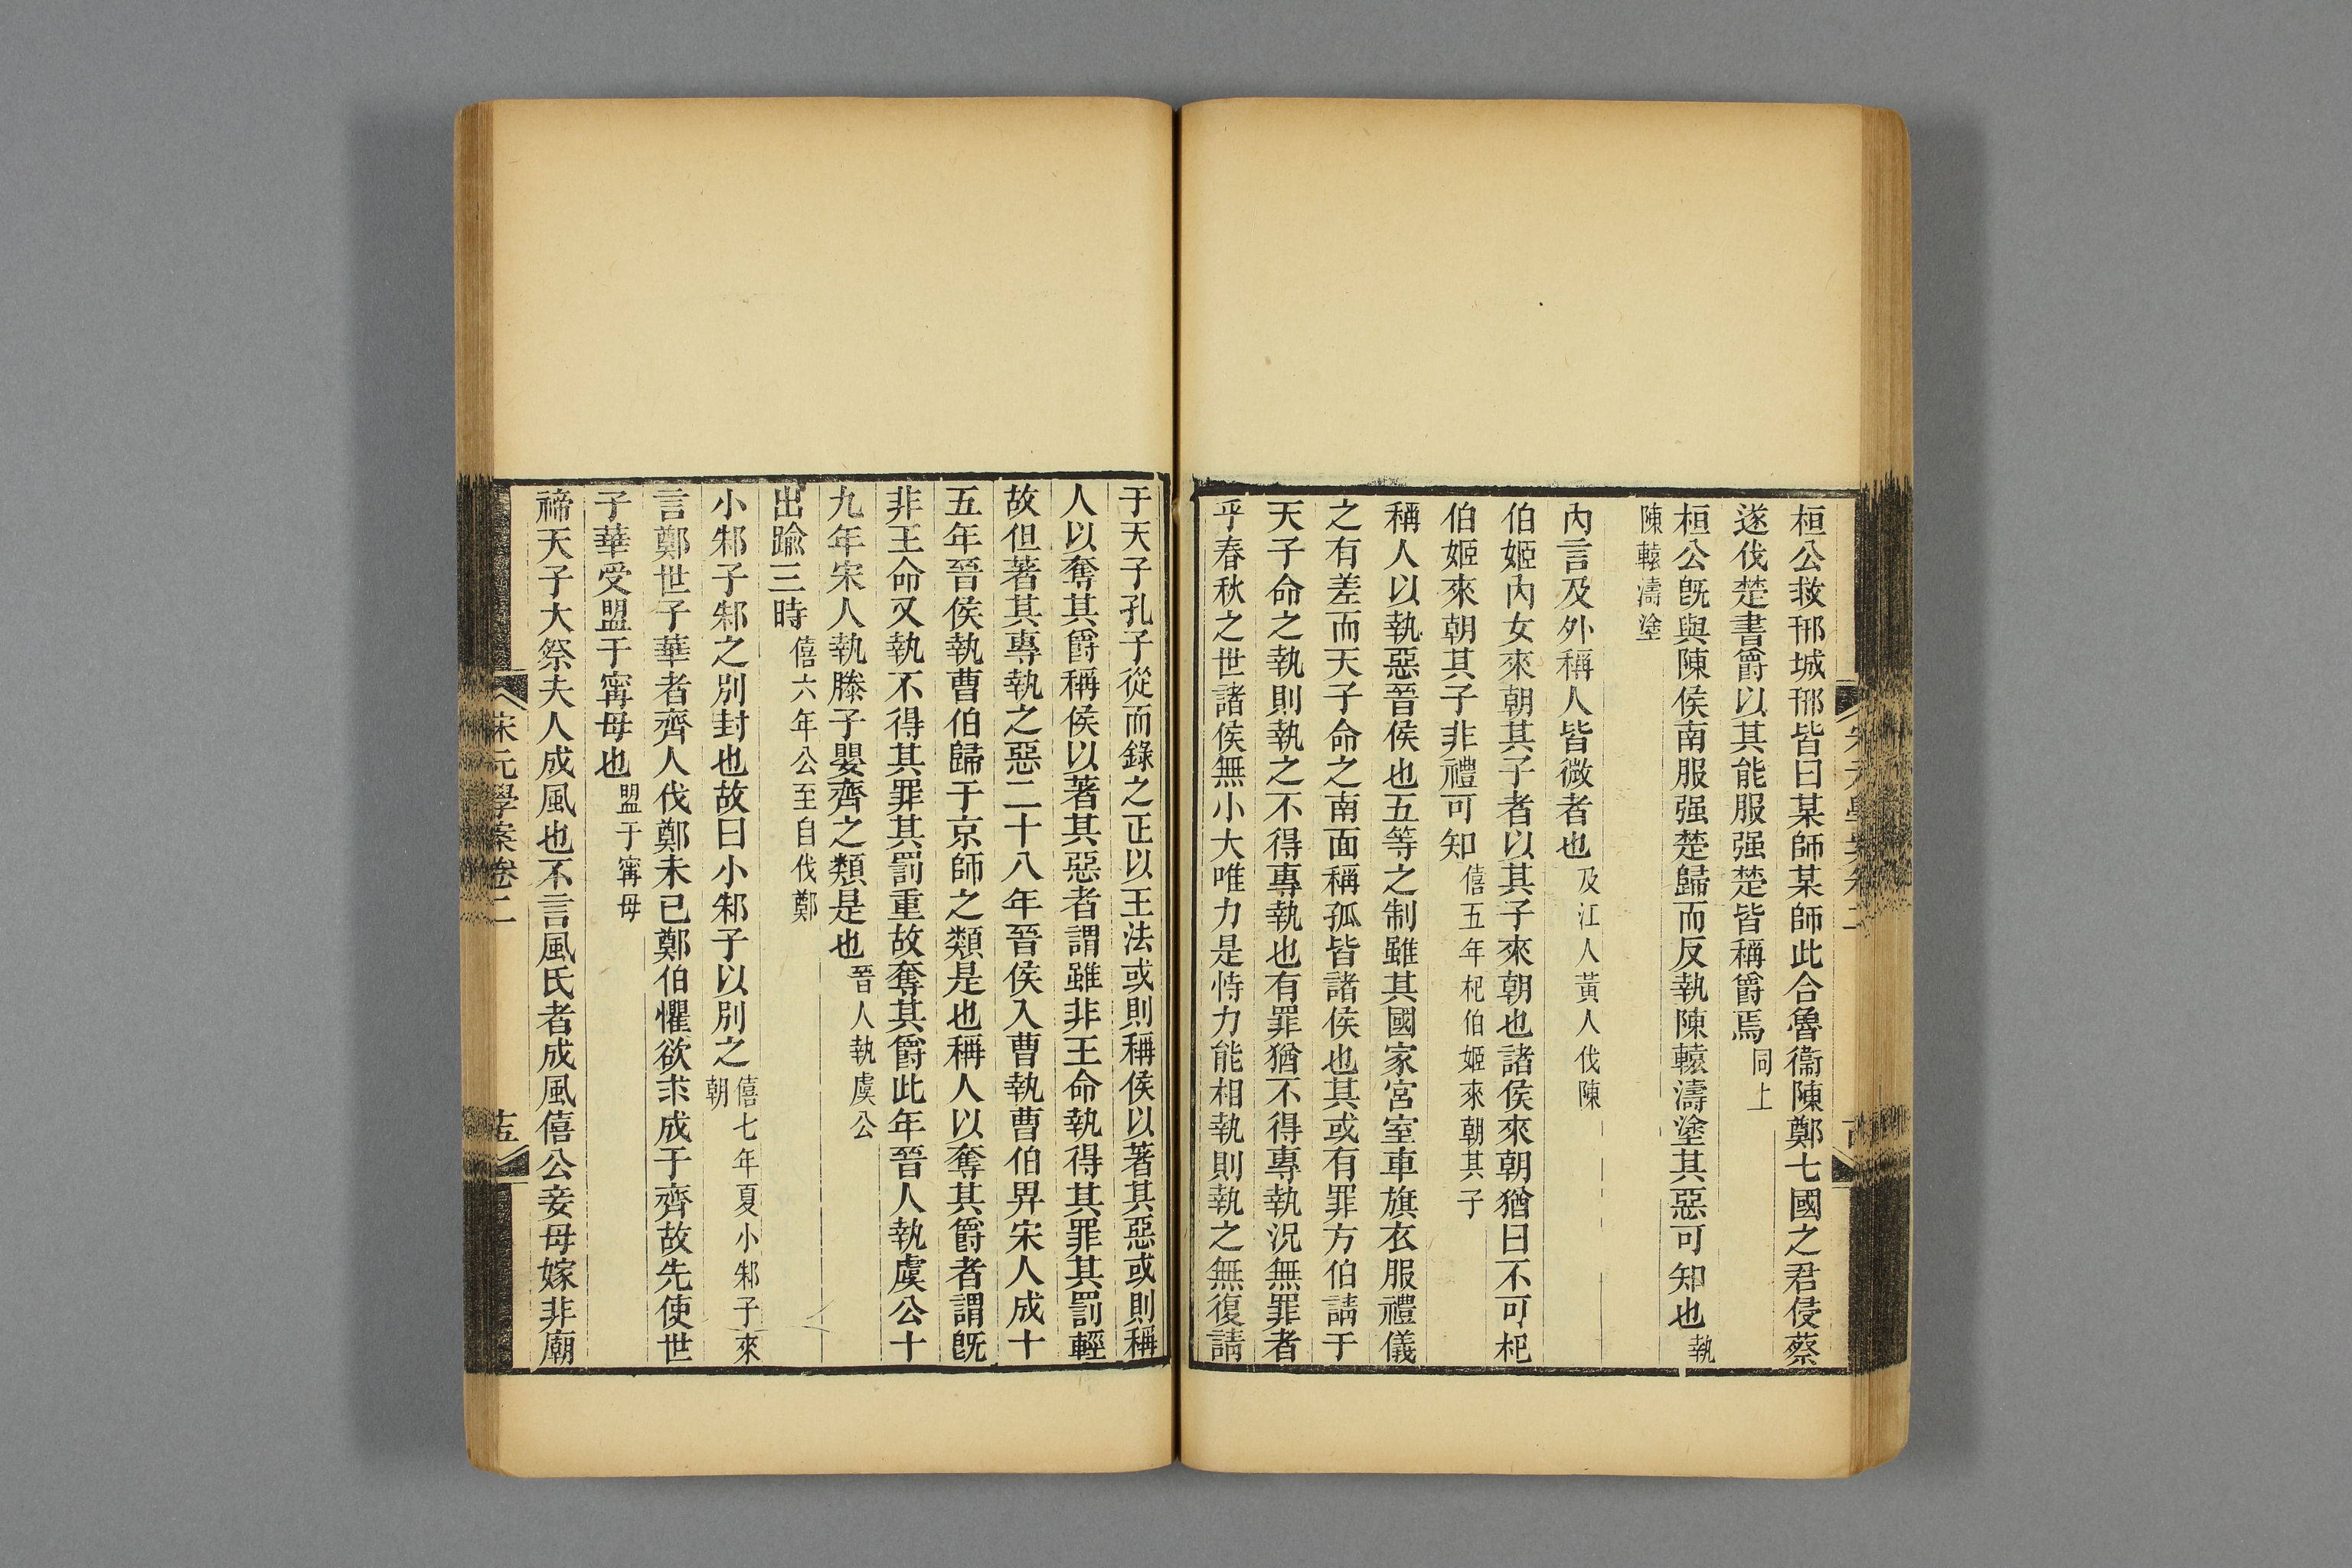 桓公救邢城邢皆曰某師某師此合魯衞陳鄭七國之君侵蔡
遂伐楚書爵以其能服强楚皆稱爵焉同上
桓公旣與陳侯南服强楚歸而反執陳轅濤塗其惡可知也執
陳轅濤塗
內言及外稱人皆微者也及江人黃人伐陳
伯姬內女來朝其子者以其子來朝也諸侯來朝猶曰不可杞
伯姬來朝其子非禮可知僖五年杞伯姬來朝其子
稱人以執惡晉侯也五等之制雖其國家宮室車旗衣服禮儀
之有差而天子命之南面稱孤皆諸侯也其或有罪方伯請于
天子命之執則執之不得專執也有罪猶不得專執況無罪者
乎春秋之世諸侯無小大唯力是恃力能相執則執之無復請
于天子孔子從而錄之正以王法或則稱侯以著其惡或則稱
人以奪其爵稱侯以著其惡者謂雖非王命執得其罪其罰輕
故但著其專執之惡二十八年晉侯入曹執曹伯畀宋人成十
五年晉侯執曹伯歸于京師之類是也稱人以奪其爵者謂旣
非王命又執不得其罪其罰重故奪其爵此年晉人執虞公十
九年宋人執滕子嬰齊之類是也晉人執虞公
出踰三時僖六年公至自伐鄭
小邾子邾之別封也故曰小邾子以別之僖七年夏小邾子來
朝
言鄭世子華者齊人伐鄭未已鄭伯懼欲求成于齊故先使世
子華受盟于甯母也盟于甯母
禘天子大祭夫人成風也不言風氏者成風僖公妾母嫁非廟
宋元學案卷二
十五